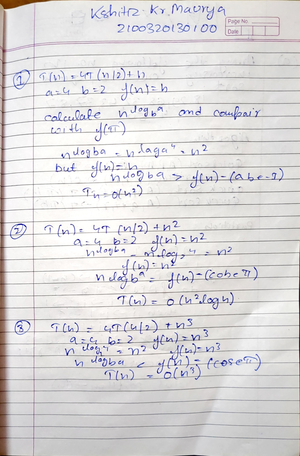 Kshitiz Kr Maurya
2100320130100
Page No.
Date
① T(n) = 4T(n/2)+n
a=4 b=2 f(n)=n
calculate n^log_b a and compair
with f(n)
n^log_b a = n^log_2 4 = n²
but f(n)=n
n^log_b a > f(n)-(case-I)
Tn=O(n²)
② T(n) = 4T(n/2)+n²
a=4 b=2 f(n)=n²
n^log_b a = n^log_2 4 = n²
f(n)=n²
n^log_b a = f(n)-(case II)
T(n) = O(n²logn)
③ T(n) = 4T(n/2)+n³
a=4 b=2 f(n)=n³
n^log_2 4 = n² f(n)=n³
n^log_b a < f(n) - (case III)
T(n) = O(n³)